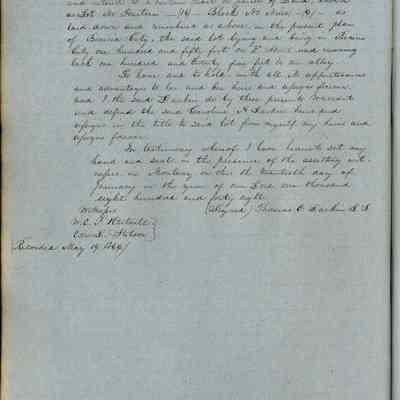 as Lot No Fourteen —14— Block No Nine —9— as
laid down and numbered as above in the present plan
of Benicia City, the said lot lying and being in Benicia
City one hundred and fifty feet on D Street and running
back one hundred and twenty five feet to an alley
To have and to hold with all its appurtenances
and advantages to her and her heirs and assigns forever
and I the said Larkin do by these presents warrant
and defend the said Caroline A Larkin heirs and
assigns in the title to said lot from myself my heirs and
assigns forever.
In testimony whereof I have hereunto set my
hand and seal in the presence of the attesting wit-
nesses in Monterey on this the twentieth day of
January in the year of our Lord one thousand
eight hundred and forty eight
Witness (Signed) Thomas O Larkin L S
W. C. J.
Recorded May 19